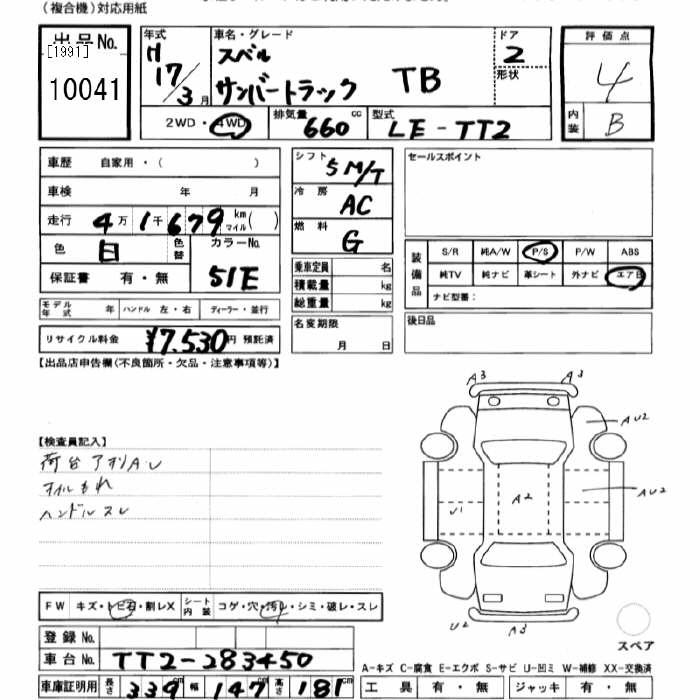 (複合機)対応用紙
出品No.
[1991]
10041
年式
H17/3月
車名・グレード
スバル
サンバートラック TB
ドア
2
形状
評価点
4
内装
B
2WD・4WD
排気量 660 cc
型式 LE-TT2
車歴 自家用・( )
車検 年 月
走行 4万1千679 km マイル( )
色 白
色替
カラーNo.
51E
保証書 有・無
モデル年式 年 ハンドル 左・右 ディーラー・並行
リサイクル料金 ¥7.530円 預託済
シフト 5M/T
冷房 AC
燃料 G
乗車定員 名
積載量 kg
総重量 kg
名変期限
月 日
セールスポイント
装備品
S/R 純A/W P/S P/W ABS
純TV 純ナビ 革シート 外ナビ エアB
ナビ型番:
後日品
【出品店申告欄(不良箇所・欠品・注意事項等)】
【検査員記入】
荷台アオリAU
オイルもれ
ハンドルスレ
A3 A3
AU2
A2
U1
AU2
U2
A3
スペア
FW キズ・トビ石・割レX シート内装 コゲ・穴・汚レ・シミ・破レ・スレ
登録No.
車台No. TT2-283450
車庫証明用 長さ 339cm 幅 147cm 高さ 181cm
A-キズ C-腐食 E-エクボ S-サビ U-凹ミ W-補修 XX-交換済
工具 有・無 ジャッキ 有・無